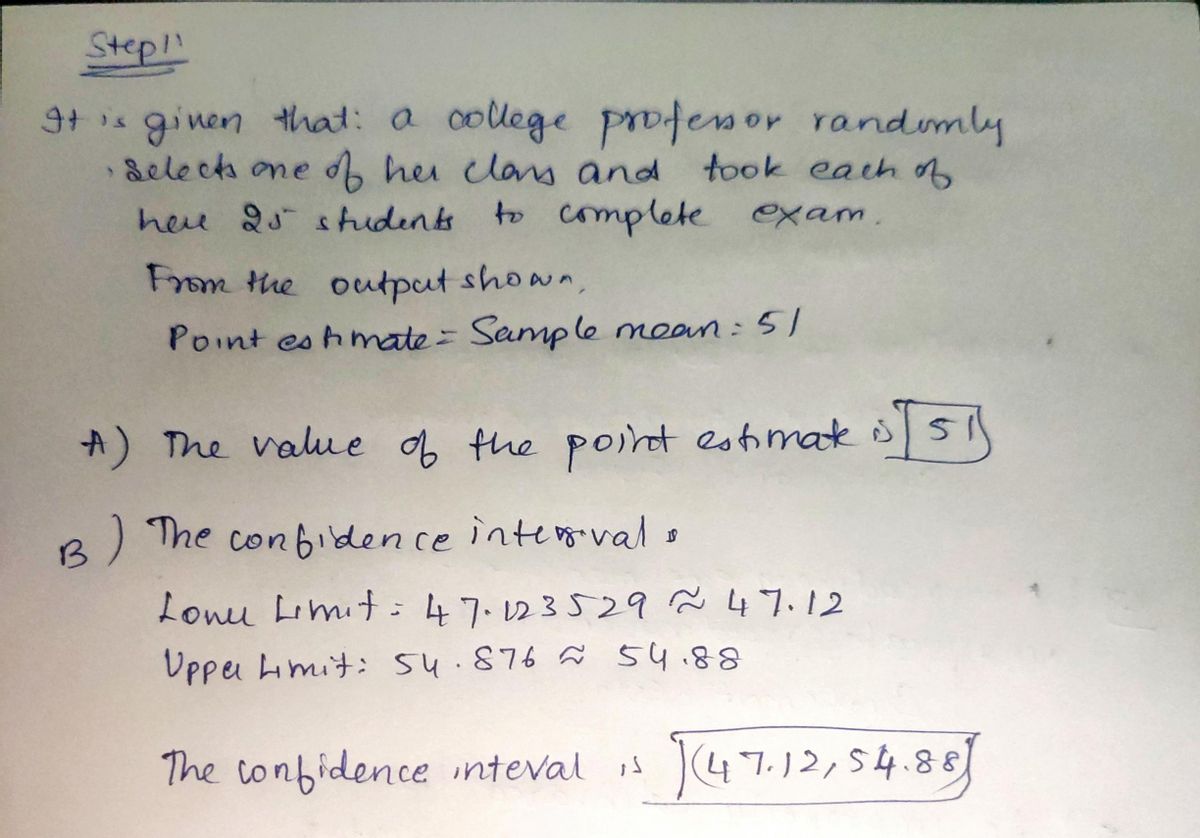 Step 1:
It is given that: a college professor randomly
selects one of her class and took each of
here 25 students to complete exam.
From the output shown,
Point estimate = Sample mean = 51
A) The value of the point estimate is 51
B) The confidence interval is
Lower Limit = 47.123529 ≈ 47.12
Upper Limit: 54.876 ≈ 54.88
The confidence inteval is (47.12, 54.88)